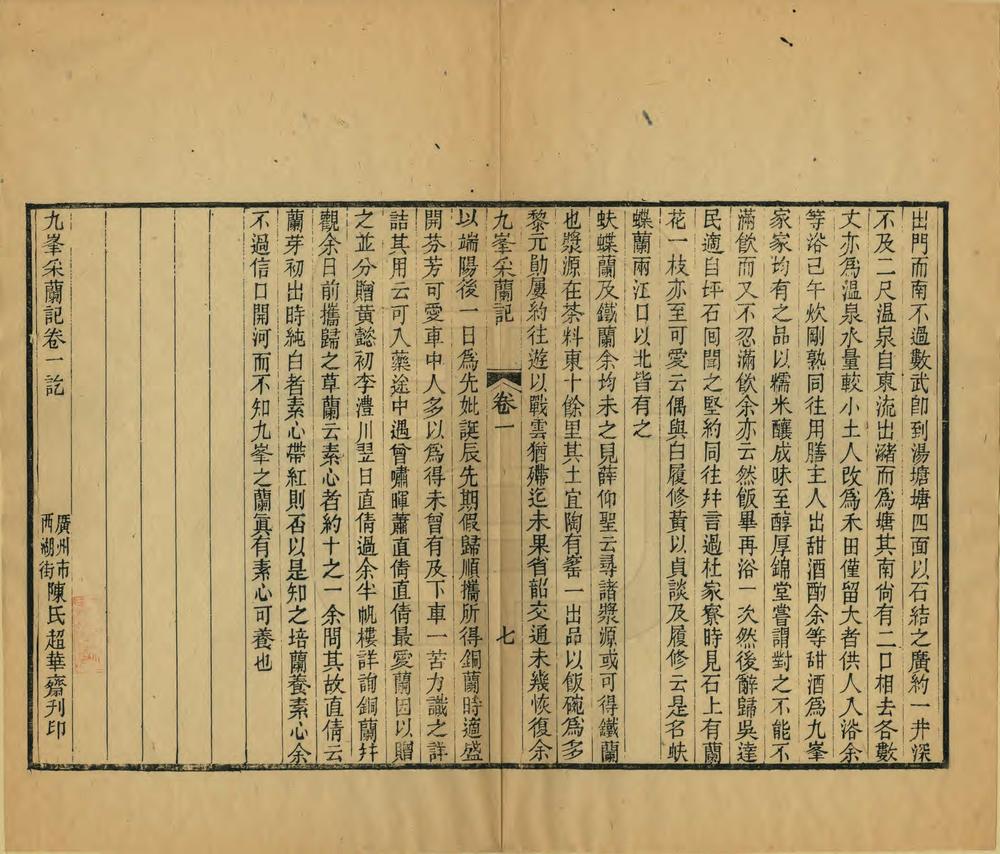 出門而南不過數武卽到湯塘塘四面以石結之廣約一井深
不及二尺温泉自東流出瀦而爲塘其南尙有二口相去各數
丈亦爲温泉水量較小土人改爲禾田僅留大者供人入浴余
等浴已午炊剛熟同往用膳主人出甜酒酌余等甜酒爲九峯
家家均有之品以糯米釀成味至醇厚錦堂嘗謂對之不能不
滿飮而又不忍滿飮余亦云然飯畢再浴一次然後辭歸吳達
民適自坪石囘聞之堅約同往幷言過杜家寮時見石上有蘭
花一枝亦至可愛云偶與白履修黃以貞談及履修云是名蚨
蝶蘭兩江口以北皆有之
蚨蝶蘭及鐵蘭余均未之見薛仰聖云尋諸漿源或可得鐵蘭
也漿源在茶料東十餘里其土宜陶有窰一出品以飯碗爲多
黎元勛屢約往遊以戰雲猶殢迄未果省韶交通未幾恢復余
九峯采蘭記 卷一 七
以端陽後一日爲先妣誕辰先期假歸順攜所得銅蘭時適盛
開芬芳可愛車中人多以爲得未曾有及下車一苦力識之詳
詰其用云可入藥途中遇曾嘯暉蕭直倩直倩最愛蘭因以贈
之並分贈黃懿初李澧川翌日直倩過余半帆樓詳詢銅蘭幷
觀余日前攜歸之草蘭云素心者約十之一余問其故直倩云
蘭芽初出時純白者素心帶紅則否以是知之培蘭養素心余
不過信口開河而不知九峯之蘭眞有素心可養也
九峯采蘭記卷一訖
廣州市
西湖街
陳氏超華齋刊印